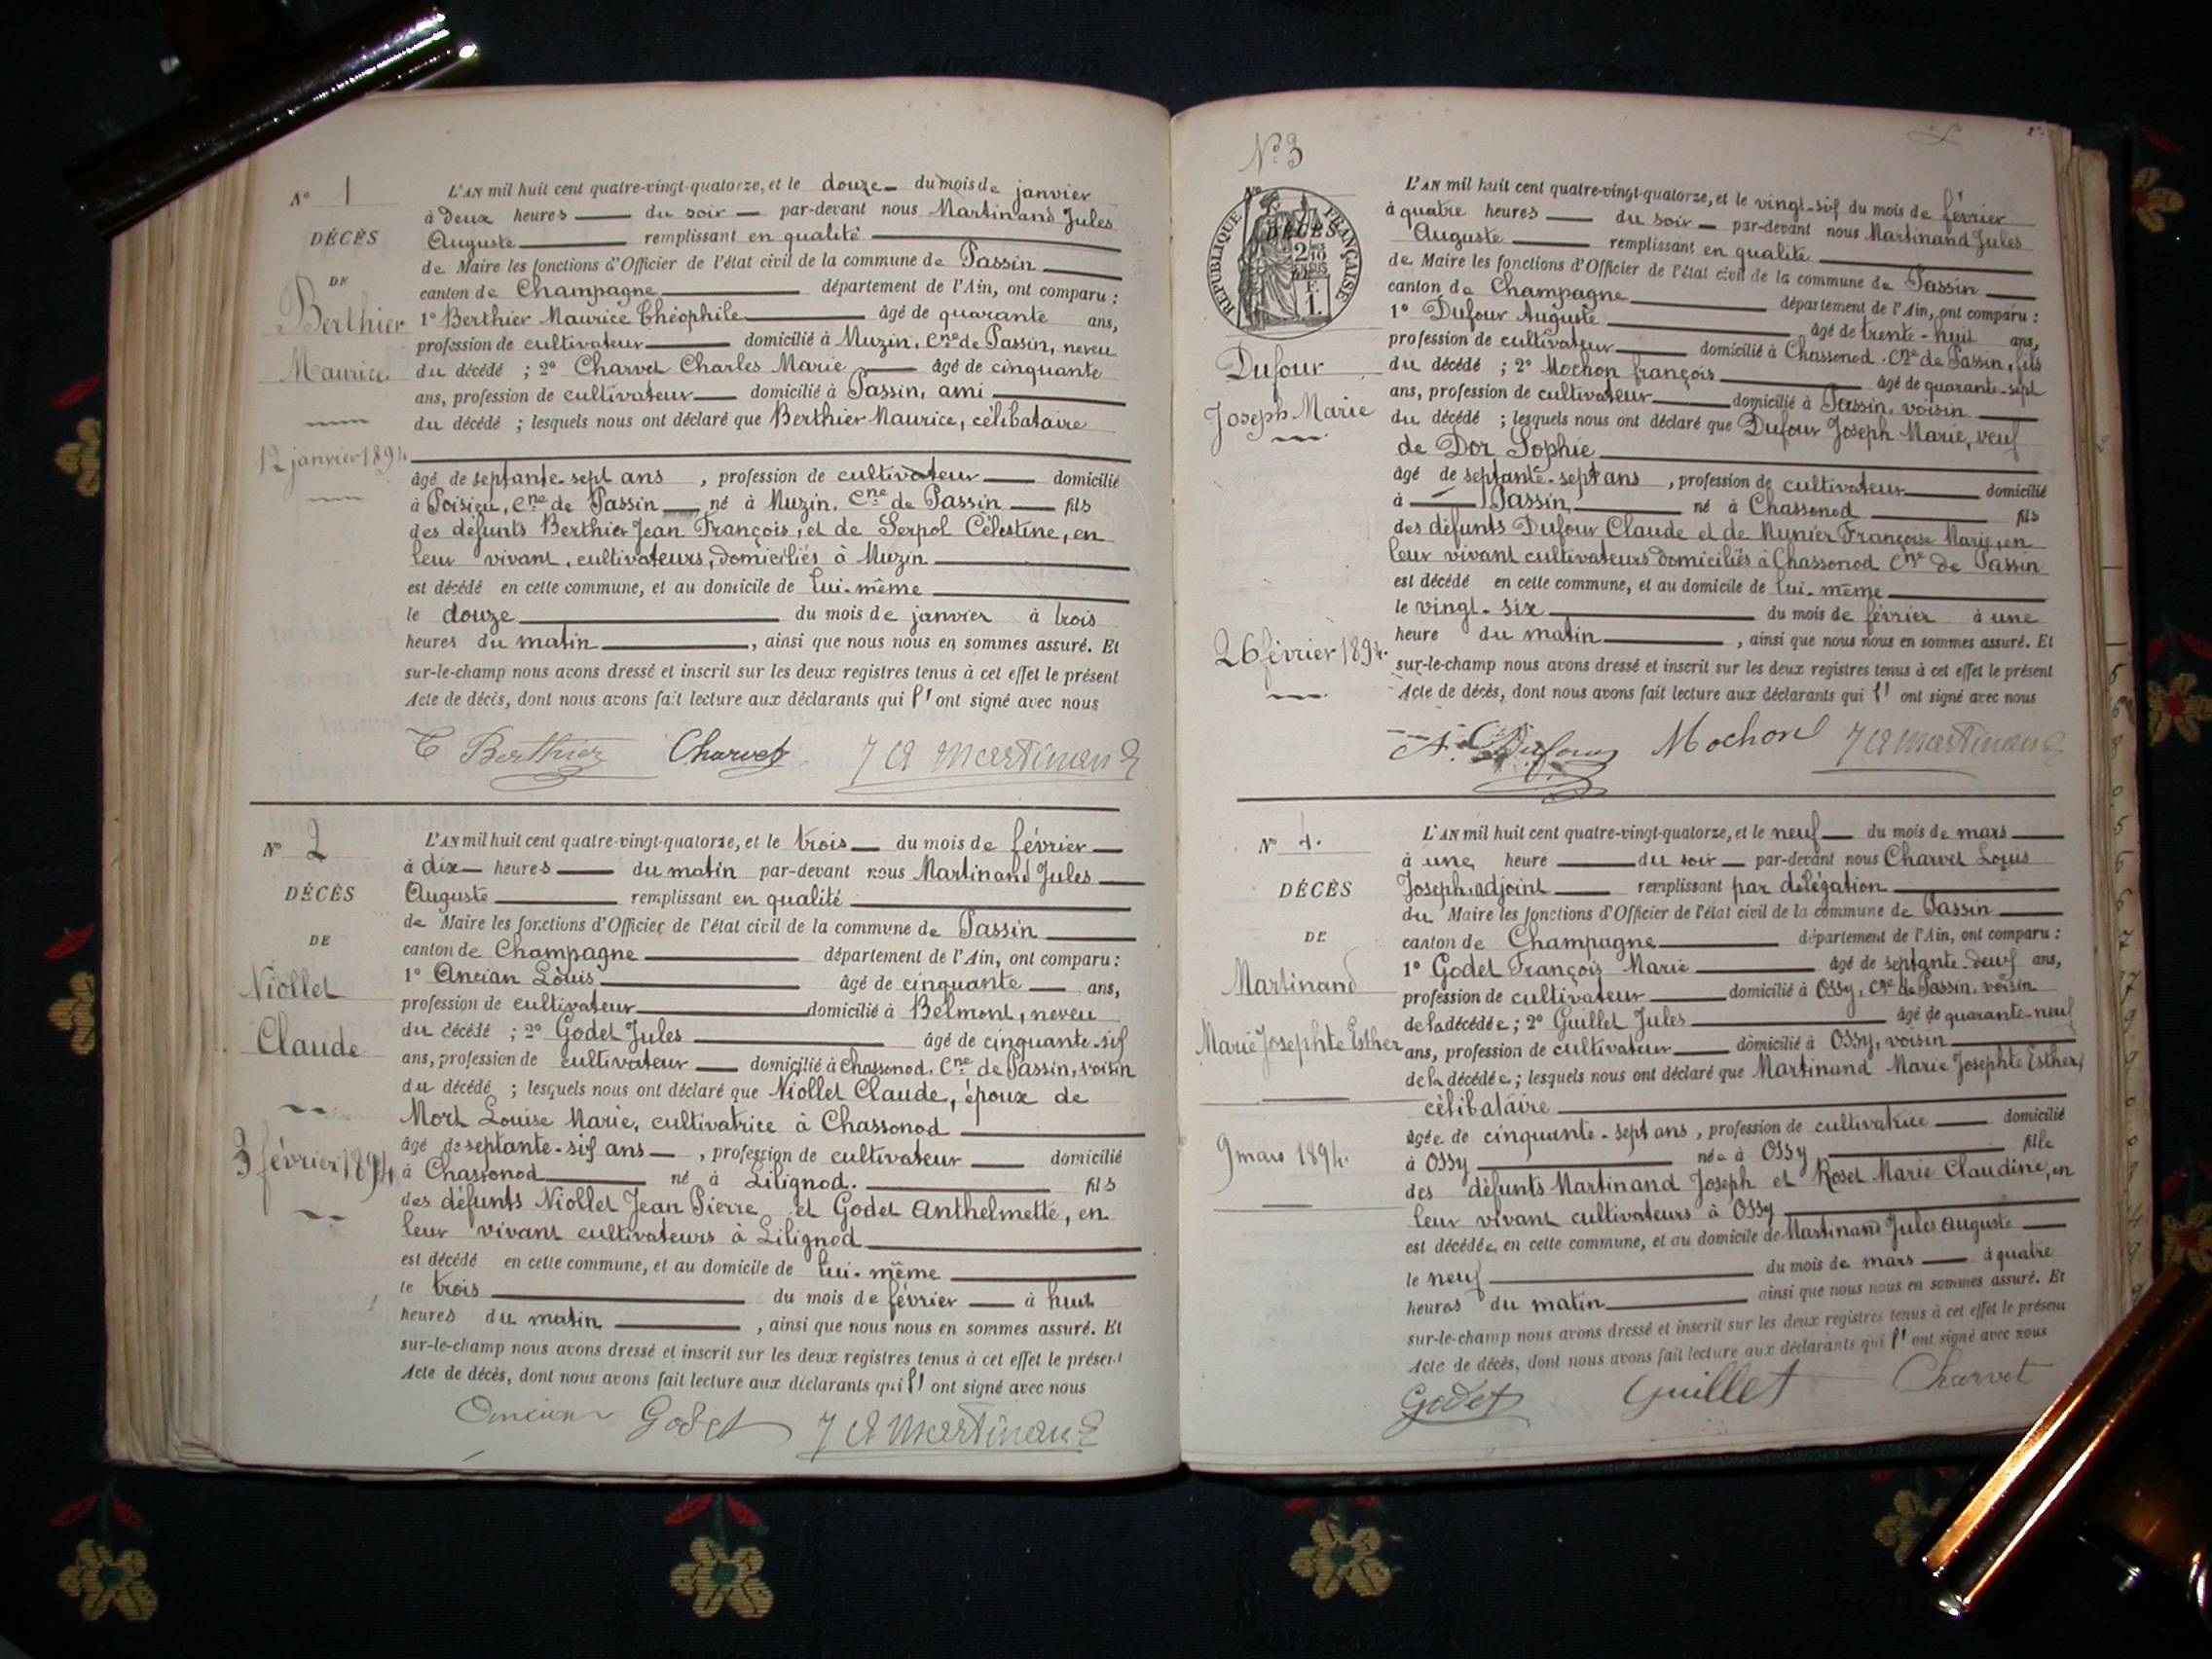 N° 1
DÉCÈS
DE
Berthier
Maurice
12 janvier 1894
L'AN mil huit cent quatre-vingt-quatorze, et le douze du mois de janvier
à deux heures du soir par-devant nous Martinand Jules
Auguste remplissant en qualité
de Maire les fonctions d'Officier de l'état civil de la commune de Passin
canton de Champagne département de l'Ain, ont comparu :
1° Berthier Maurice Théophile âgé de quarante ans,
profession de cultivateur domicilié à Muzin, Cne de Passin, neveu
du décédé ; 2° Charvet Charles Marie âgé de cinquante
ans, profession de cultivateur domicilié à Passin, ami
du décédé ; lesquels nous ont déclaré que Berthier Maurice, célibataire
âgé de septante-sept ans , profession de cultivateur domicilié
à Poisieu, Cne de Passin né à Muzin, Cne de Passin fils
des défunts Berthier Jean François, et de Serpol Célestine, en
leur vivant, cultivateurs, domiciliés à Muzin
est décédé en cette commune, et au domicile de lui-même
le douze du mois de janvier à trois
heures du matin , ainsi que nous nous en sommes assuré. Et
sur-le-champ nous avons dressé et inscrit sur les deux registres tenus à cet effet le présent
Acte de décès, dont nous avons fait lecture aux déclarants qui l' ont signé avec nous
T Berthier Charvet J A Martinand
N° 2
DÉCÈS
DE
Niollet
Claude
3 février 1894
L'AN mil huit cent quatre-vingt-quatorze, et le trois du mois de février
à dix heures du matin par-devant nous Martinand Jules
Auguste remplissant en qualité
de Maire les fonctions d'Officier de l'état civil de la commune de Passin
canton de Champagne département de l'Ain, ont comparu :
1° Ancian Louis âgé de cinquante ans,
profession de cultivateur domicilié à Belmont, neveu
du décédé ; 2° Godet Jules âgé de cinquante-six
ans, profession de cultivateur domicilié à Chassonod, Cne de Passin, voisin
du décédé ; lesquels nous ont déclaré que Niollet Claude, époux de
Mort Louise Marie, cultivatrice à Chassonod
âgé de septante-six ans , profession de cultivateur domicilié
à Chassonod né à Lilignod. fils
des défunts Niollet Jean Pierre et Godet Anthelmette, en
leur vivant cultivateurs à Lilignod
est décédé en cette commune, et au domicile de lui-même
le trois du mois de février à huit
heures du matin , ainsi que nous nous en sommes assuré. Et
sur-le-champ nous avons dressé et inscrit sur les deux registres tenus à cet effet le présent
Acte de décès, dont nous avons fait lecture aux déclarants qui l' ont signé avec nous
Ancian Godet J A Martinand
N° 3
RÉPUBLIQUE FRANÇAISE
Dufour
Joseph Marie
26 février 1894.
L'AN mil huit cent quatre-vingt-quatorze, et le vingt-six du mois de février
à quatre heures du soir par-devant nous Martinand Jules
Auguste remplissant en qualité
de Maire les fonctions d'Officier de l'état civil de la commune de Passin
canton de Champagne département de l'Ain, ont comparu :
1° Dufour Auguste âgé de trente-huit ans,
profession de cultivateur domicilié à Chassonod. Cne de Passin, fils
du décédé ; 2° Mochon françois âgé de quarante-sept
ans, profession de cultivateur domicilié à Passin, voisin
du décédé ; lesquels nous ont déclaré que Dufour Joseph Marie, veuf
de Dor Sophie
âgé de septante-sept ans , profession de cultivateur domicilié
à Passin, né à Chassonod fils
des défunts Dufour Claude et de Munier Françoise Marie, en
leur vivant cultivateurs domiciliés à Chassonod Cne de Passin
est décédé en cette commune, et au domicile de lui-même
le vingt-six du mois de février à une
heure du matin , ainsi que nous nous en sommes assuré. Et
sur-le-champ nous avons dressé et inscrit sur les deux registres tenus à cet effet le présent
Acte de décès, dont nous avons fait lecture aux déclarants qui l' ont signé avec nous
A. Dufour Mochon J A Martinand
N° 4.
DÉCÈS
DE
Martinand
Marie Josephte Esther
9 mars 1894.
L'AN mil huit cent quatre-vingt-quatorze, et le neuf du mois de mars
à une heure du soir par-devant nous Charvet Louis
Joseph, adjoint remplissant par délégation
du Maire les fonctions d'Officier de l'état civil de la commune de Passin
canton de Champagne département de l'Ain, ont comparu :
1° Godet François Marie âgé de septante-deux ans,
profession de cultivateur domicilié à Ossy, Cne de Passin, voisin
de la décédée ; 2° Guillet Jules âgé de quarante-neuf
ans, profession de cultivateur domicilié à Ossy, voisin
de la décédée ; lesquels nous ont déclaré que Martinand Marie Josephte Esther,
célibataire
âgée de cinquante-sept ans, profession de cultivatrice domicilié
à Ossy née à Ossy fille
des défunts Martinand Joseph et Roset Marie Claudine, en
leur vivant cultivateurs à Ossy
est décédée en cette commune, et au domicile de Martinand Jules Auguste
le neuf du mois de mars à quatre
heures du matin ainsi que nous nous en sommes assuré. Et
sur-le-champ nous avons dressé et inscrit sur les deux registres tenus à cet effet le présent
Acte de décès, dont nous avons fait lecture aux déclarants qui l' ont signé avec nous
Godet Guillet Charvet